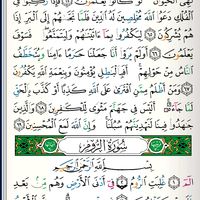 لَهِيَ ٱلْحَيَوَانُ لَوْ كَانُوا۟ يَعْلَمُونَ ٦٤ فَإِذَا رَكِبُوا۟ فِى
ٱلْفُلْكِ دَعَوُا۟ ٱللَّهَ مُخْلِصِينَ لَهُ ٱلدِّينَ فَلَمَّا نَجَّىٰهُمْ إِلَى ٱلْبَرِّ إِذَا
هُمْ يُشْرِكُونَ ٦٥ لِيَكْفُرُوا۟ بِمَآ ءَاتَيْنَٰهُمْ وَلِيَتَمَتَّعُوا۟ فَسَوْفَ
يَعْلَمُونَ ٦٦ أَوَلَمْ يَرَوْا۟ أَنَّا جَعَلْنَا حَرَمًا ءَامِنًا وَيُتَخَطَّفُ
ٱلنَّاسُ مِنْ حَوْلِهِمْ أَفَبِٱلْبَٰطِلِ يُؤْمِنُونَ وَبِنِعْمَةِ ٱللَّهِ يَكْفُرُونَ
٦٧ وَمَنْ أَظْلَمُ مِمَّنِ ٱفْتَرَىٰ عَلَى ٱللَّهِ كَذِبًا أَوْ كَذَّبَ بِٱلْحَقِّ
لَمَّا جَآءَهُۥٓ أَلَيْسَ فِى جَهَنَّمَ مَثْوًى لِّلْكَٰفِرِينَ ٦٨ وَٱلَّذِينَ
جَٰهَدُوا۟ فِينَا لَنَهْدِيَنَّهُمْ سُبُلَنَا وَإِنَّ ٱللَّهَ لَمَعَ ٱلْمُحْسِنِينَ ٦٩
سُورَةُ ٱلرُّومِ
بِسْمِ ٱللَّهِ ٱلرَّحْمَٰنِ ٱلرَّحِيمِ
الٓمٓ ١ غُلِبَتِ ٱلرُّومُ ٢ فِىٓ أَدْنَى ٱلْأَرْضِ وَهُم مِّنۢ بَعْدِ